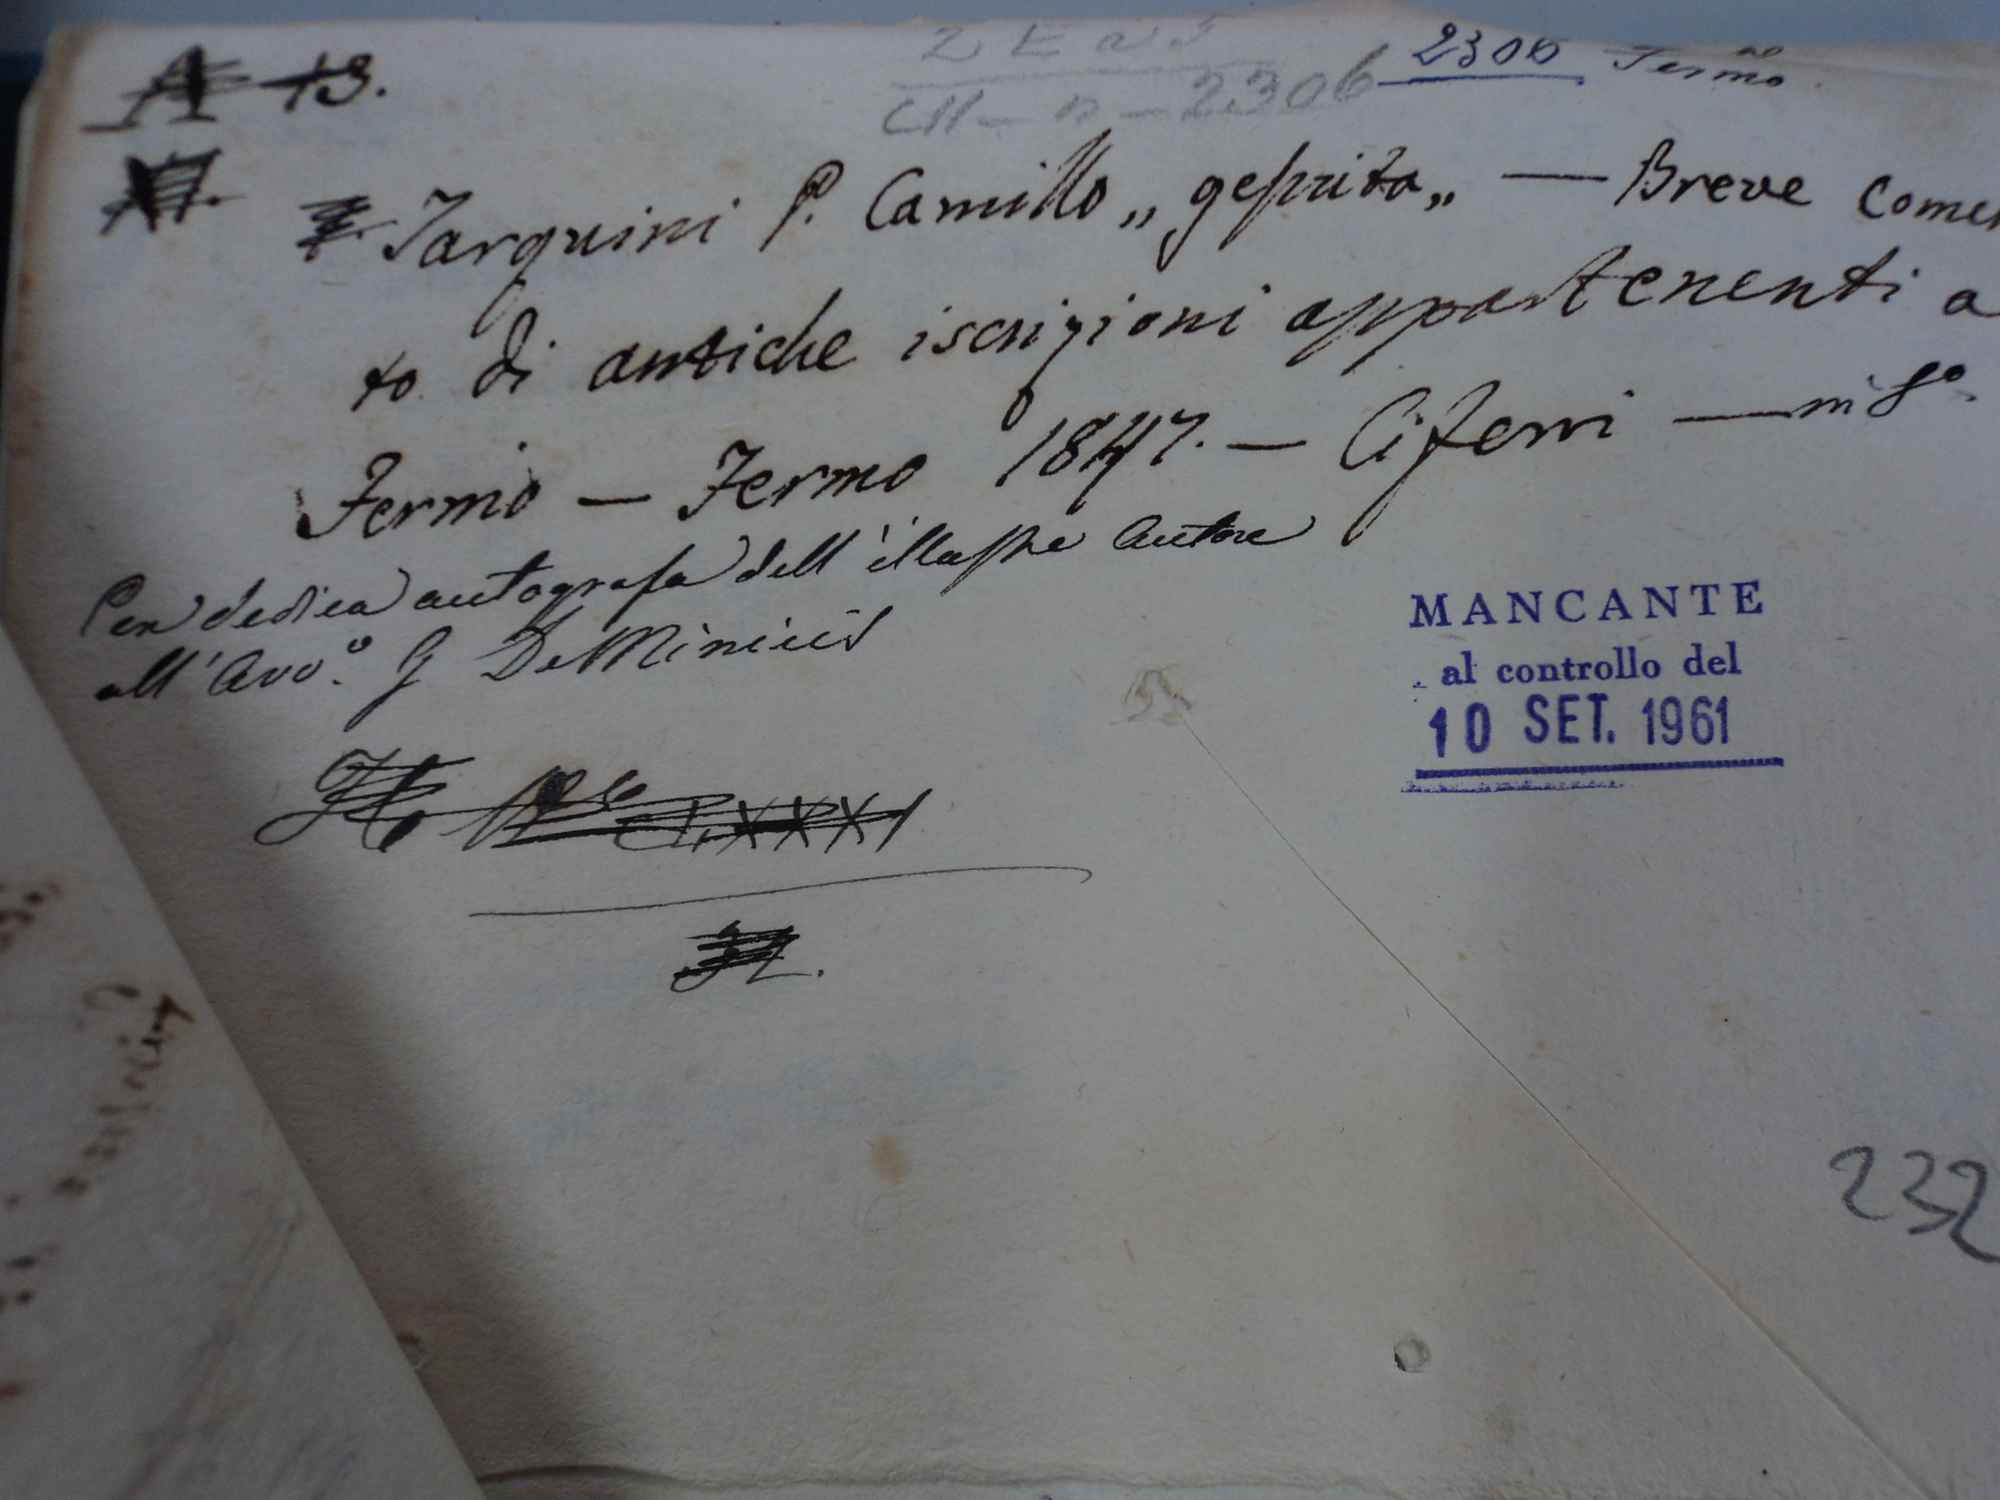 A 13.
2306
2306 Fermo
Tarquini P. Camillo „ gesuita „ — Breve comen
to di antiche iscrizioni appartenenti a
Fermo — Fermo 1847. — Ciferri — in 8°.
Con dedica autografa dell'illustre Autore
all'Avv.° G De Minicis
MANCANTE
al controllo del
10 SET. 1961
232